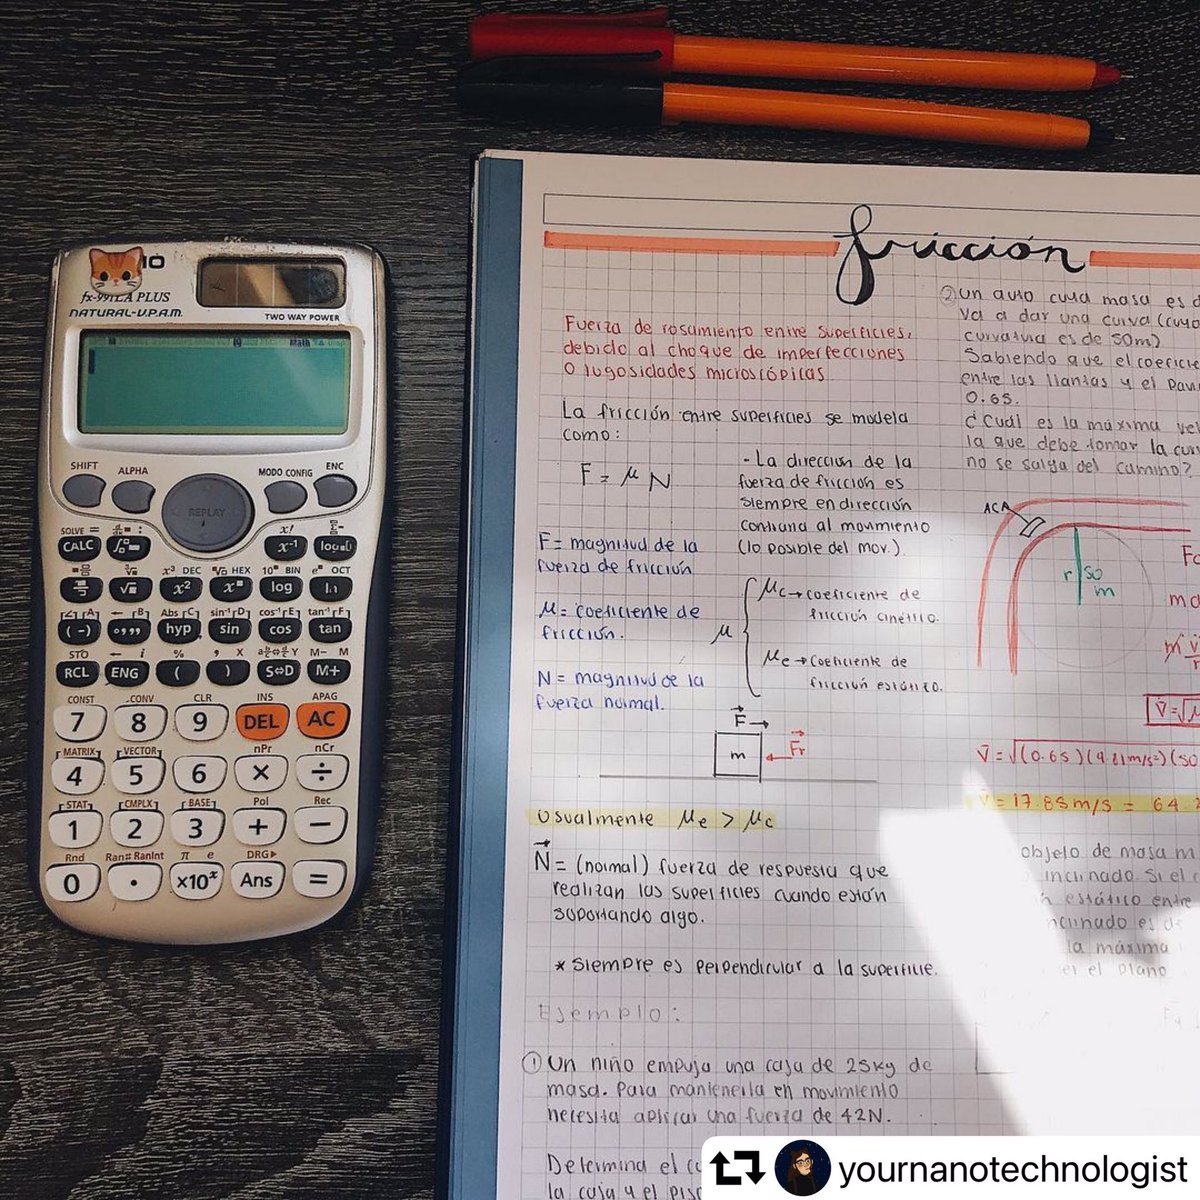 fx-991LA PLUS
NATURAL-V.P.A.M.
TWO WAY POWER
Math
SHIFT
ALPHA
REPLAY
MODO CONFIG
ENC
SOLVE =
x!
CALC
x⁻¹
x³ DEC
HEX
BIN
OCT
x²
log
ln
Abs
sin⁻¹ D
cos⁻¹ E
tan⁻¹ F
(-)
hyp
sin
cos
tan
STO
← i
%
, X
M- M
RCL
ENG
(
)
S⇔D
M+
CONST
CONV
CLR
INS
APAG
7
8
9
DEL
AC
MATRIX
VECTOR
nPr
nCr
4
5
6
×
÷
STAT
CMPLX
BASE
Pol
Rec
1
2
3
+
−
Rnd
Ran# RanInt
π e
DRG▶
0
.
×10ˣ
Ans
=
fricción
Fuerza de rosamiento entre superficies,
debido al choque de imperfecciones
o rugosidades microscópicas
La fricción entre superficies se modela
como:
F = μ N
- La dirección de la
fuerza de fricción es
siempre en dirección
contraria al movimiento
(lo posible del mov.)
F= magnitud de la
fuerza de fricción
μ= coeficiente de
fricción.
N = magnitud de la
fuerza normal.
μ
μc→coeficiente de
fricción cinético.
μe→coeficiente de
fricción estático.
F→
m
Fr
usualmente μe > μc
N = (normal) fuerza de respuesta que
realizan las superficies cuando están
soportando algo.
* siempre es perpendicular a la superficie.
Ejemplo:
① Un niño empuja una caja de 25kg de
masa. Para mantenerla en movimiento
necesita aplicar una fuerza de 42N.
Determina el
la caja y el piso
② Un auto cuya masa es
va a dar una curva (cuya
curvatura es de 50m)
Sabiendo que el
entre las llantas y el
0.65.
¿Cuál es la máxima
la que debe tomar la
no se salga del camino?
ACA
r 50
m
V=√
V=√(0.65)(9.81m/s²)(50
V=17.85m/s = 64.
objeto de masa m
inclinado. Si el
estático entre
inclinado es
la máxima
el plano
yournanotechnologist